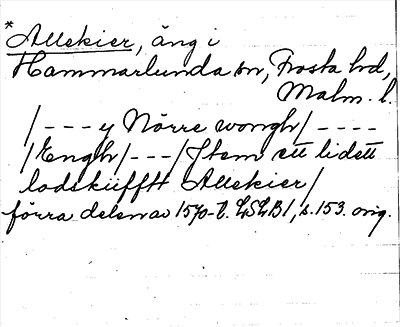 * Allekier, äng i
Hammarlunda sn, Frosta hd,
Malm. l.
/ - - - y Nörre wongh / - - - -
/ Engh / - - - / Jtem ett lidett
lodskiifftt Allekier /
förra delen av 1570-t. LSLB1, s. 153. orig.